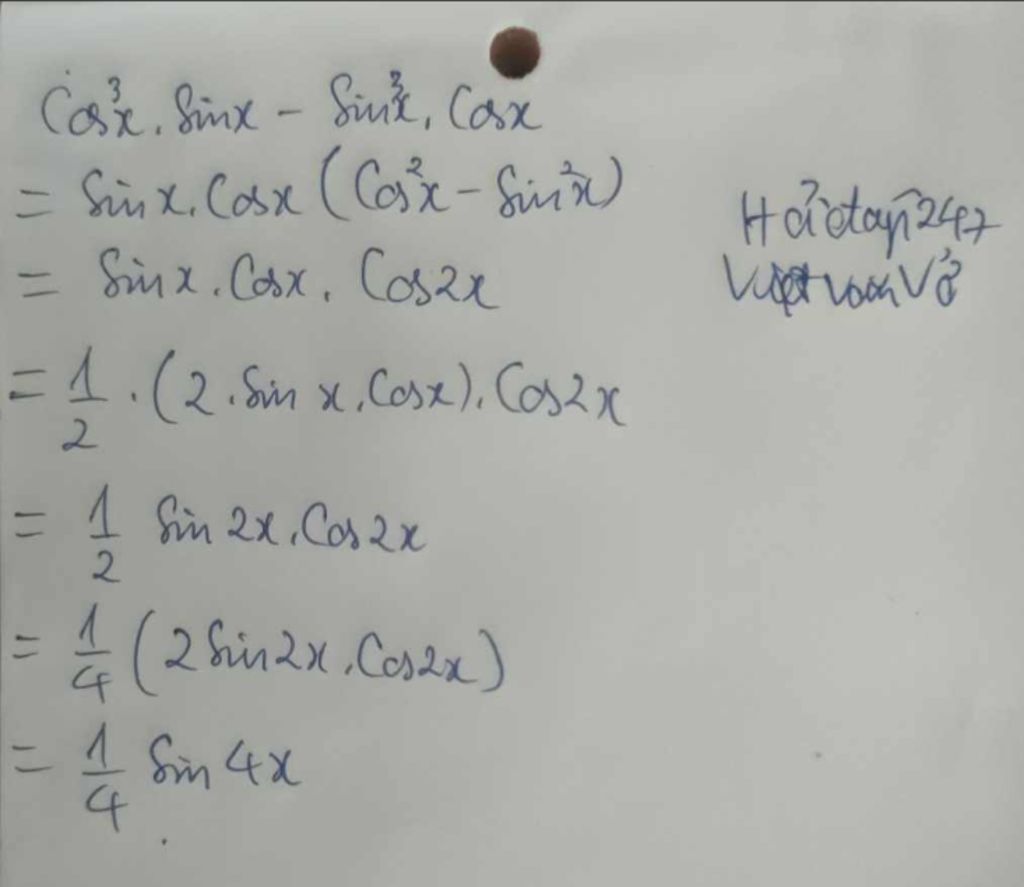 Cos³x . Sinx - Sin³x . Cosx
= Sinx . Cosx (Cos²x - Sin²x)
= Sinx . Cosx . Cos2x
= 1/2 . (2 . Sin x . Cosx) . Cos2x
= 1/2 Sin 2x . Cos2x
= 1/4 (2 Sin2x . Cos2x)
= 1/4 Sin 4x
247
Vở